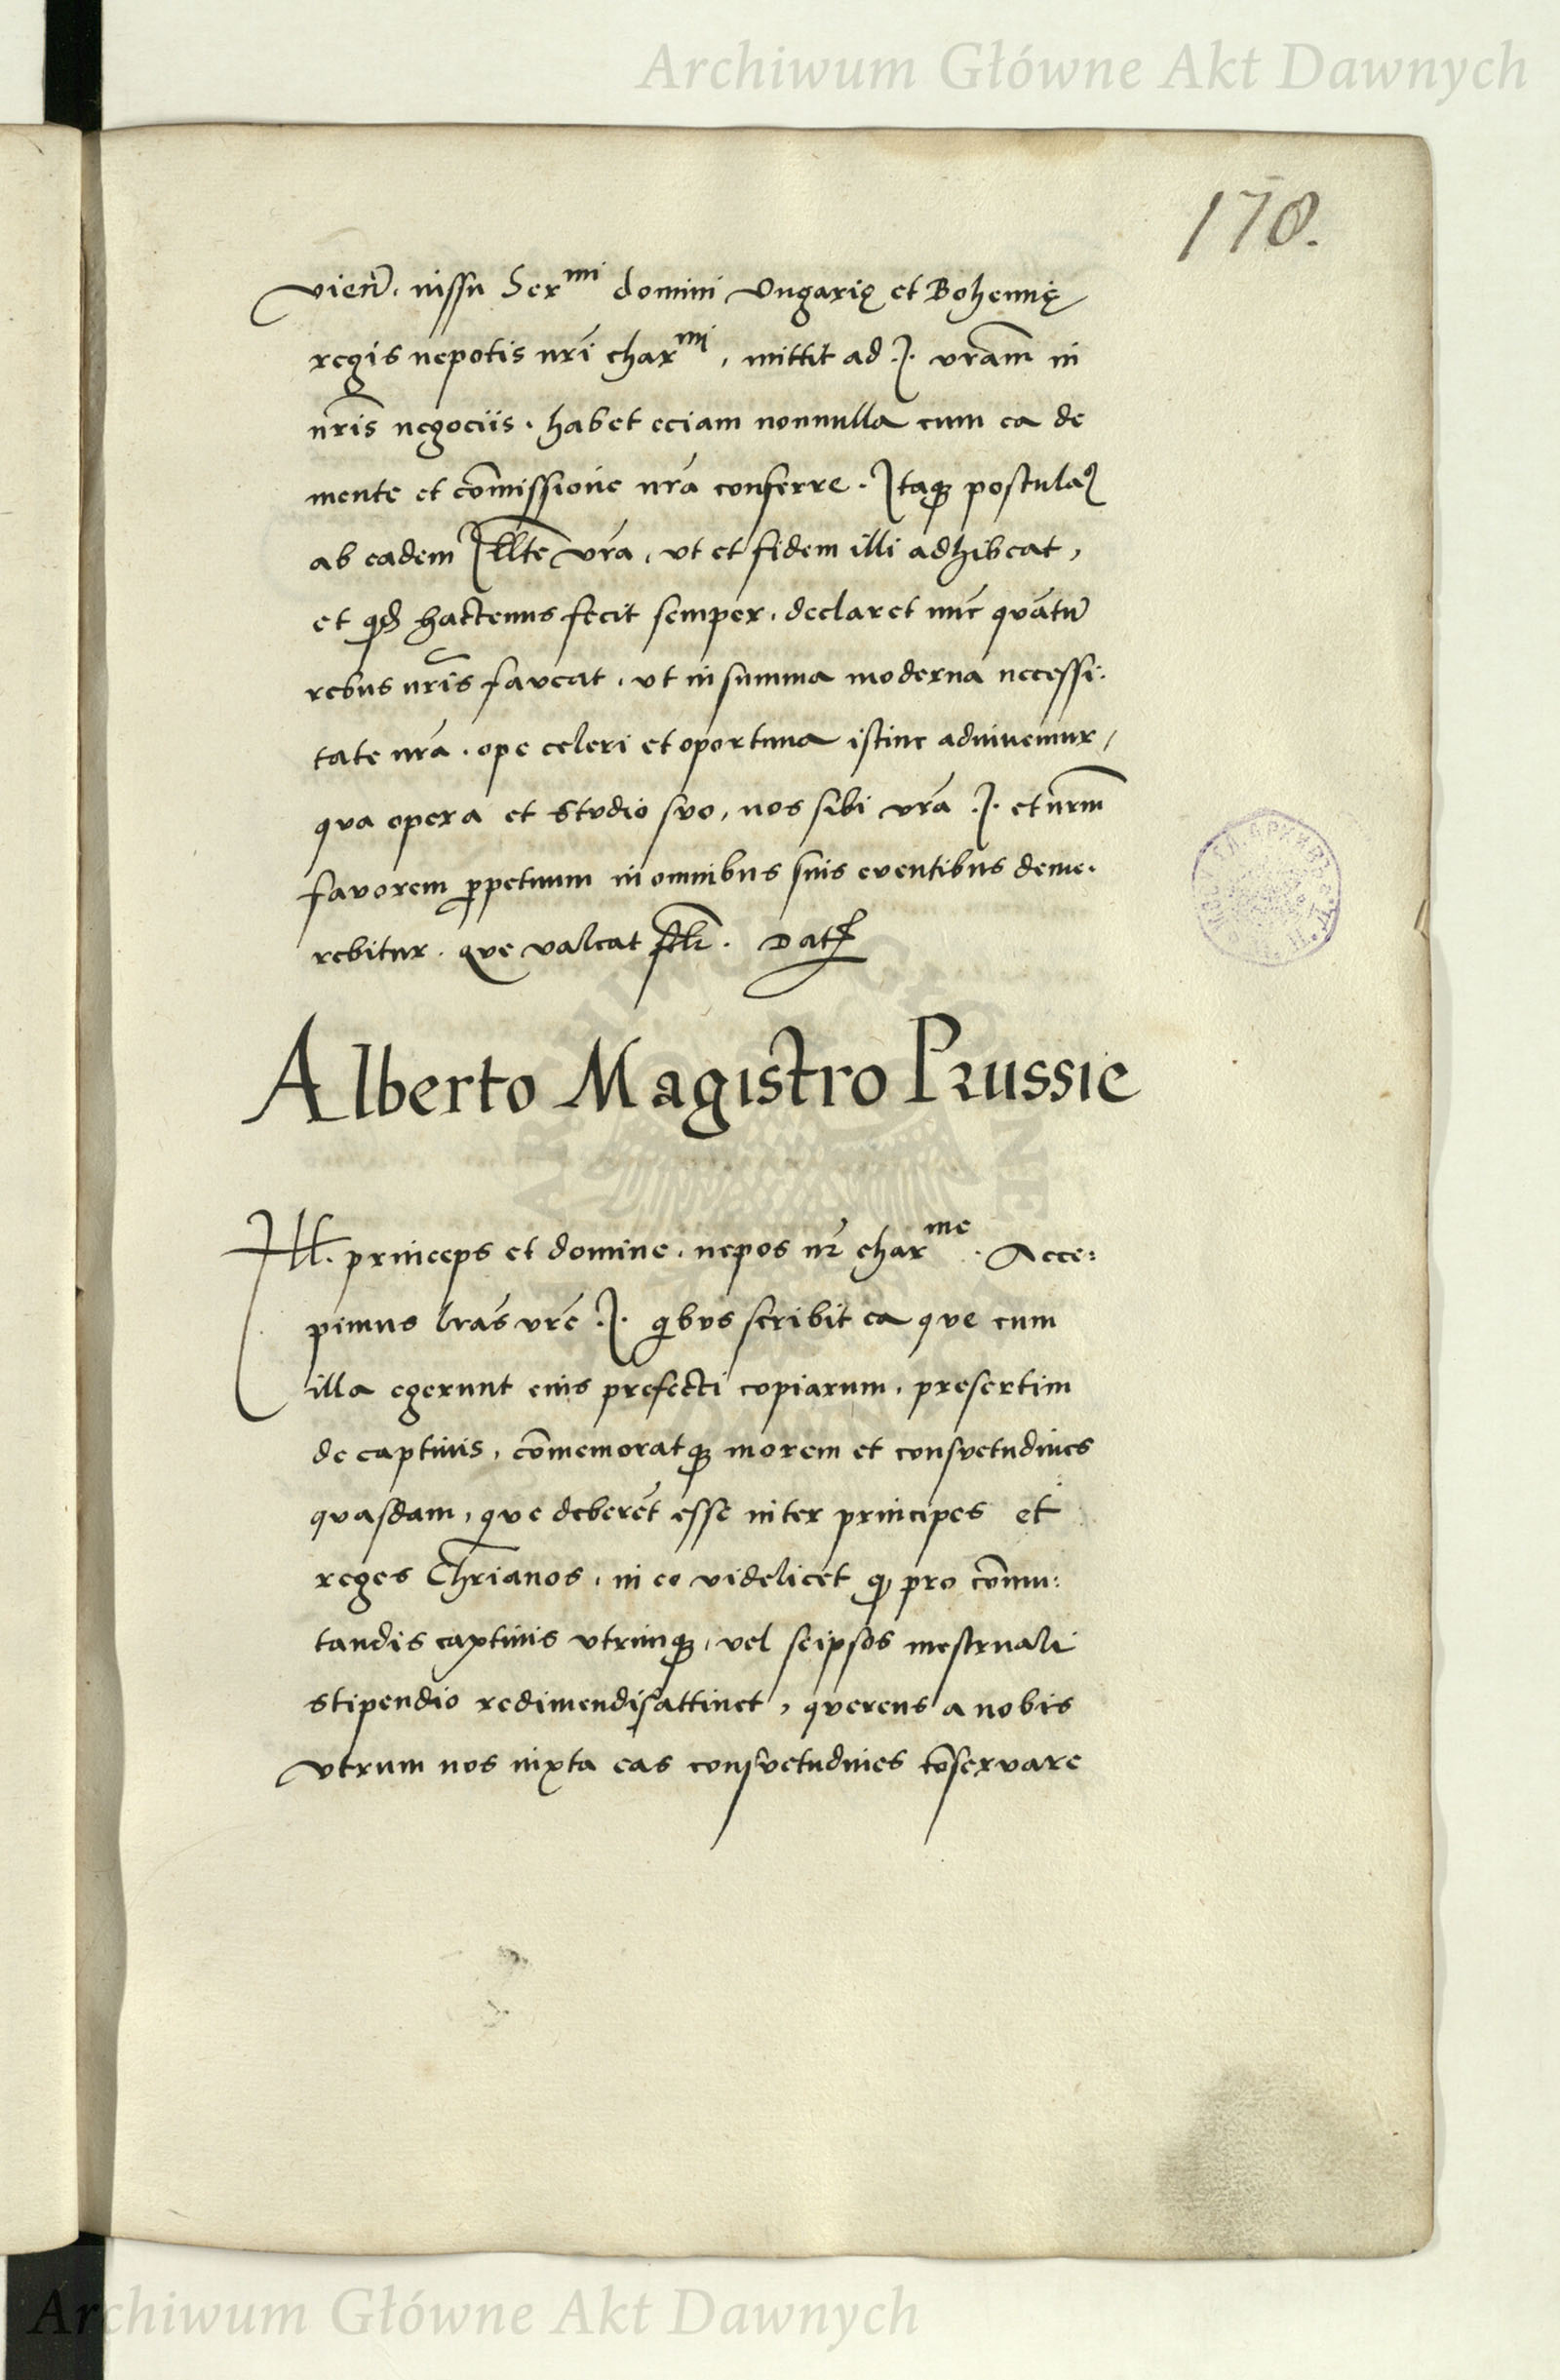 Archiwum Główne Akt Dawnych
178.
vień. iussu Ser^mi domini Ungarię et Bohemię
regis nepotis nri char^mi, mittit ad .J. vram in
nris negociis. habet eciam nonnulla cum ea de
mente et comissione nra conferre. Itaq postulam9
ab eadem Illte vra, vt et fidem illi adhibeat,
et qd hactenus fecit semper. declaret nuc quātū
rebus nris faveat. vt in summa moderna necessi:
tate nra. ope celeri et oportuna istinc adiuvemur,
qua opera et studio suo, nos sibi vra .J. et nrm
favorem ppetuum in omnibus suis eventibus deme.
rebitur. que valeat. Dat
Alberto Magistro Prussie
Ill. princeps et domine. nepos nr char^me. Acce:
pimus lras vre .J. qbus scribit ea que cum
illa egerunt eius prefecti copiarum, presertim
de captivis, comemoratq morem et consvetudines
quasdam, que deberēt esse inter principes et
reges Chrianos, in eo videlicet q pro comu:
tandis captivis vtrimq, vel seipsos mestruali
stipendio redimendis attinet, querens a nobis
vtrum nos iuxta eas consvetudines coservare
Archiwum Główne Akt Dawnych